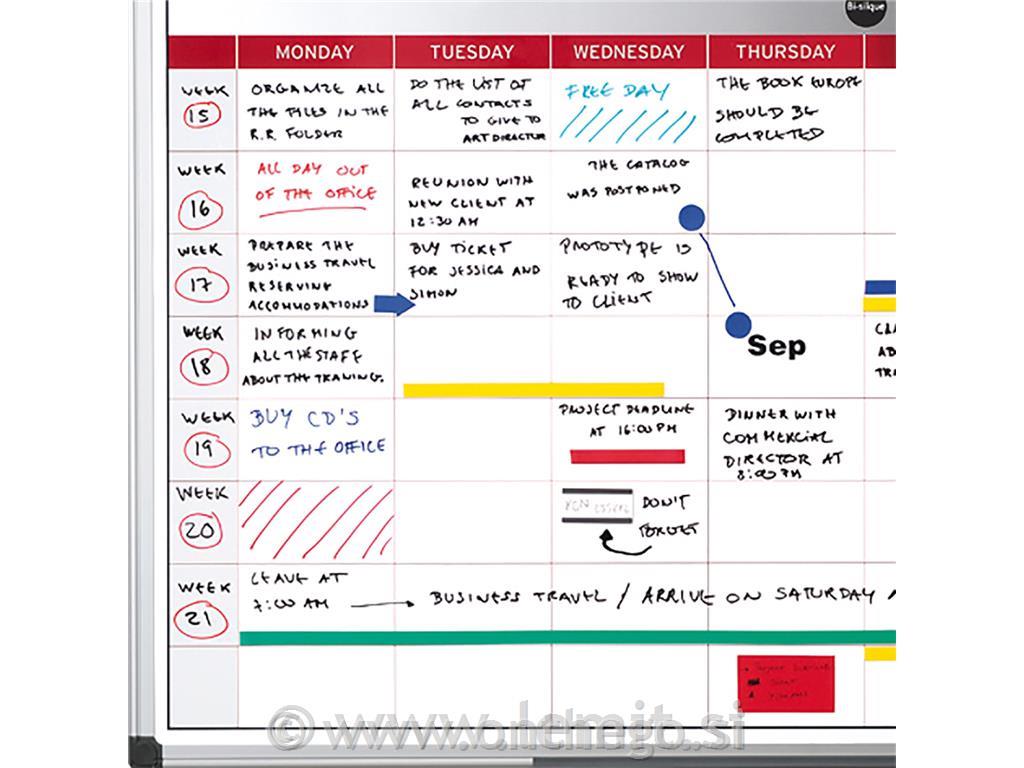 Bi-silque
MONDAY TUESDAY WEDNESDAY THURSDAY
WEEK
15
ORGANIZE ALL
THE FILES IN THE
R.R. FOLDER
DO THE LIST OF
ALL CONTACTS
TO GIVE TO
ART DIRECTOR
FREE DAY
THE BOOK EUROPE
SHOULD BE
COMPLETED
WEEK
16
ALL DAY OUT
OF THE OFFICE
REUNION WITH
NEW CLIENT AT
12:30 AM
THE CATALOG
WAS POSTPONED
WEEK
17
PREPARE THE
BUSINESS TRAVEL
RESERVING
ACCOMMODATIONS
BUY TICKET
FOR JESSICA AND
SIMON
PROTOTYPE IS
READY TO SHOW
TO CLIENT
Sep
WEEK
18
INFORMING
ALL THE STAFF
ABOUT THE TRANING.
WEEK
19
BUY CD'S
TO THE OFFICE
PROJECT DEADLINE
AT 16:00 PM
DINNER WITH
COMMERCIAL
DIRECTOR AT
8:00 PM
WEEK
20
DON'T
FORGET
WEEK
21
LEAVE AT
7:00 AM
BUSINESS TRAVEL / ARRIVE ON SATURDAY